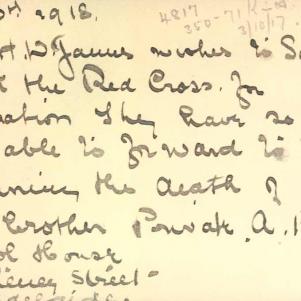 1918.
4817
350-71 K.I.A.
3/10/17
H. D. James wishes to
the Red Cross. for
they have so
able to forward to
the death of
brother Private A.
House
Street